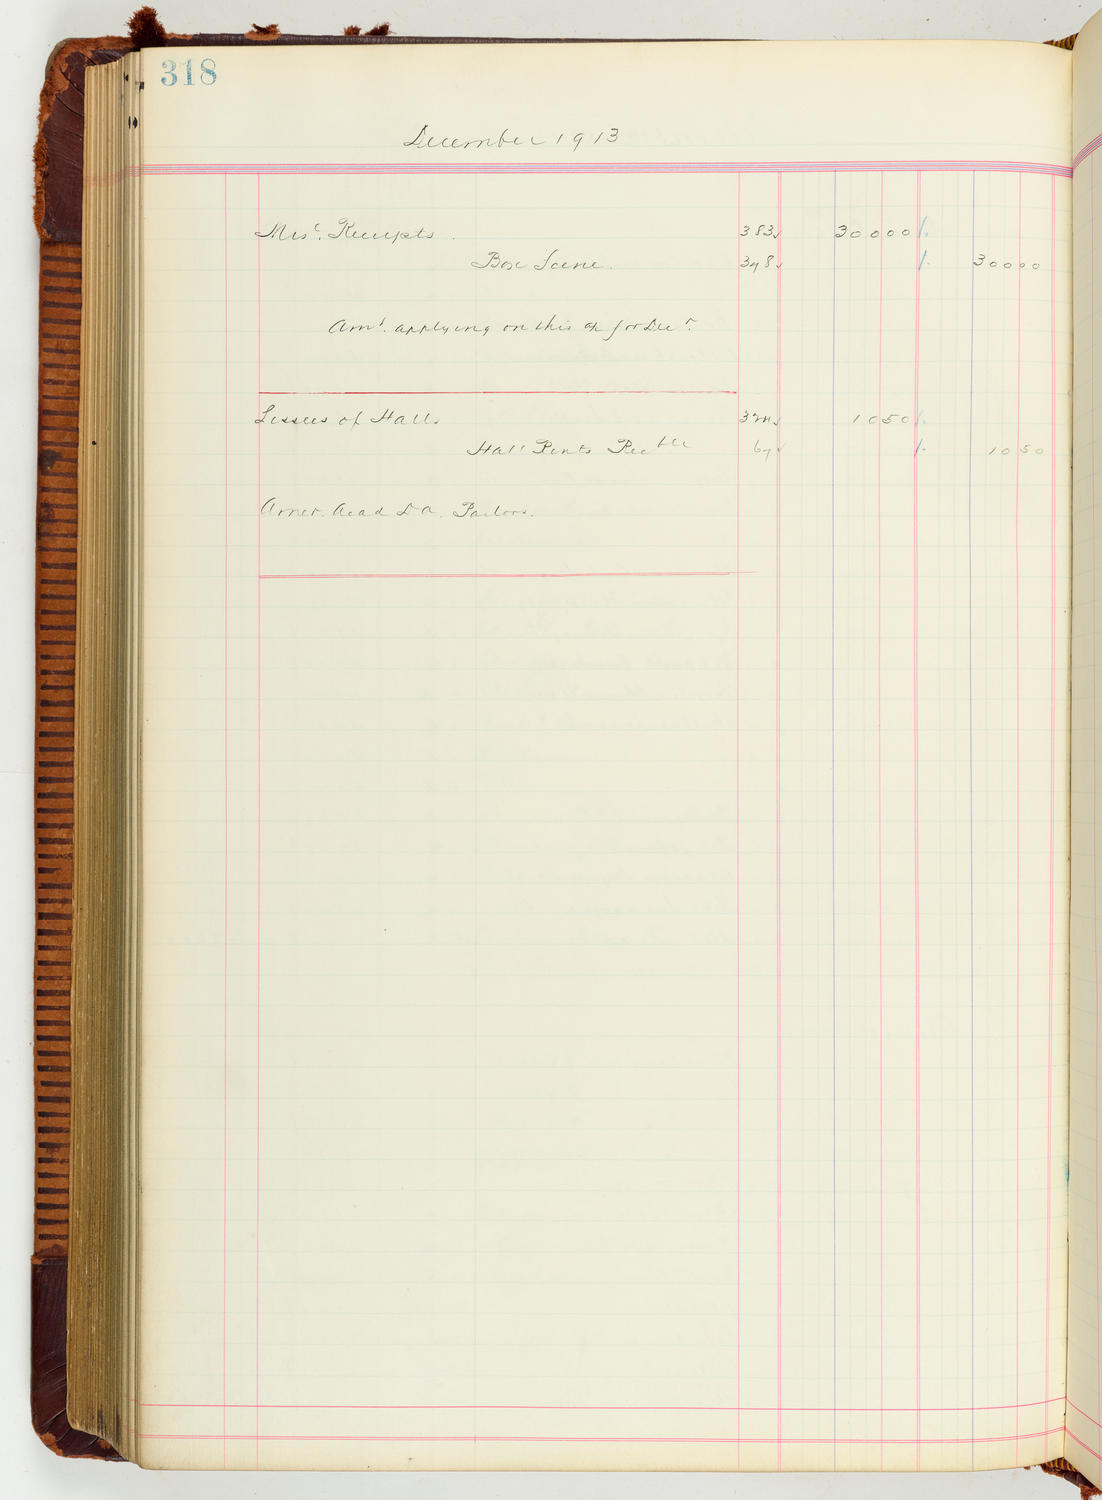 318
December 1913
Misc. Receipts. 383 30000
Box Scene. 348 30000
Amt. applying on this a/c for Decr.
Lessees of Halls 1050
Hall Rents Recble 67 1050
Amer. Acad D A. Parlors.